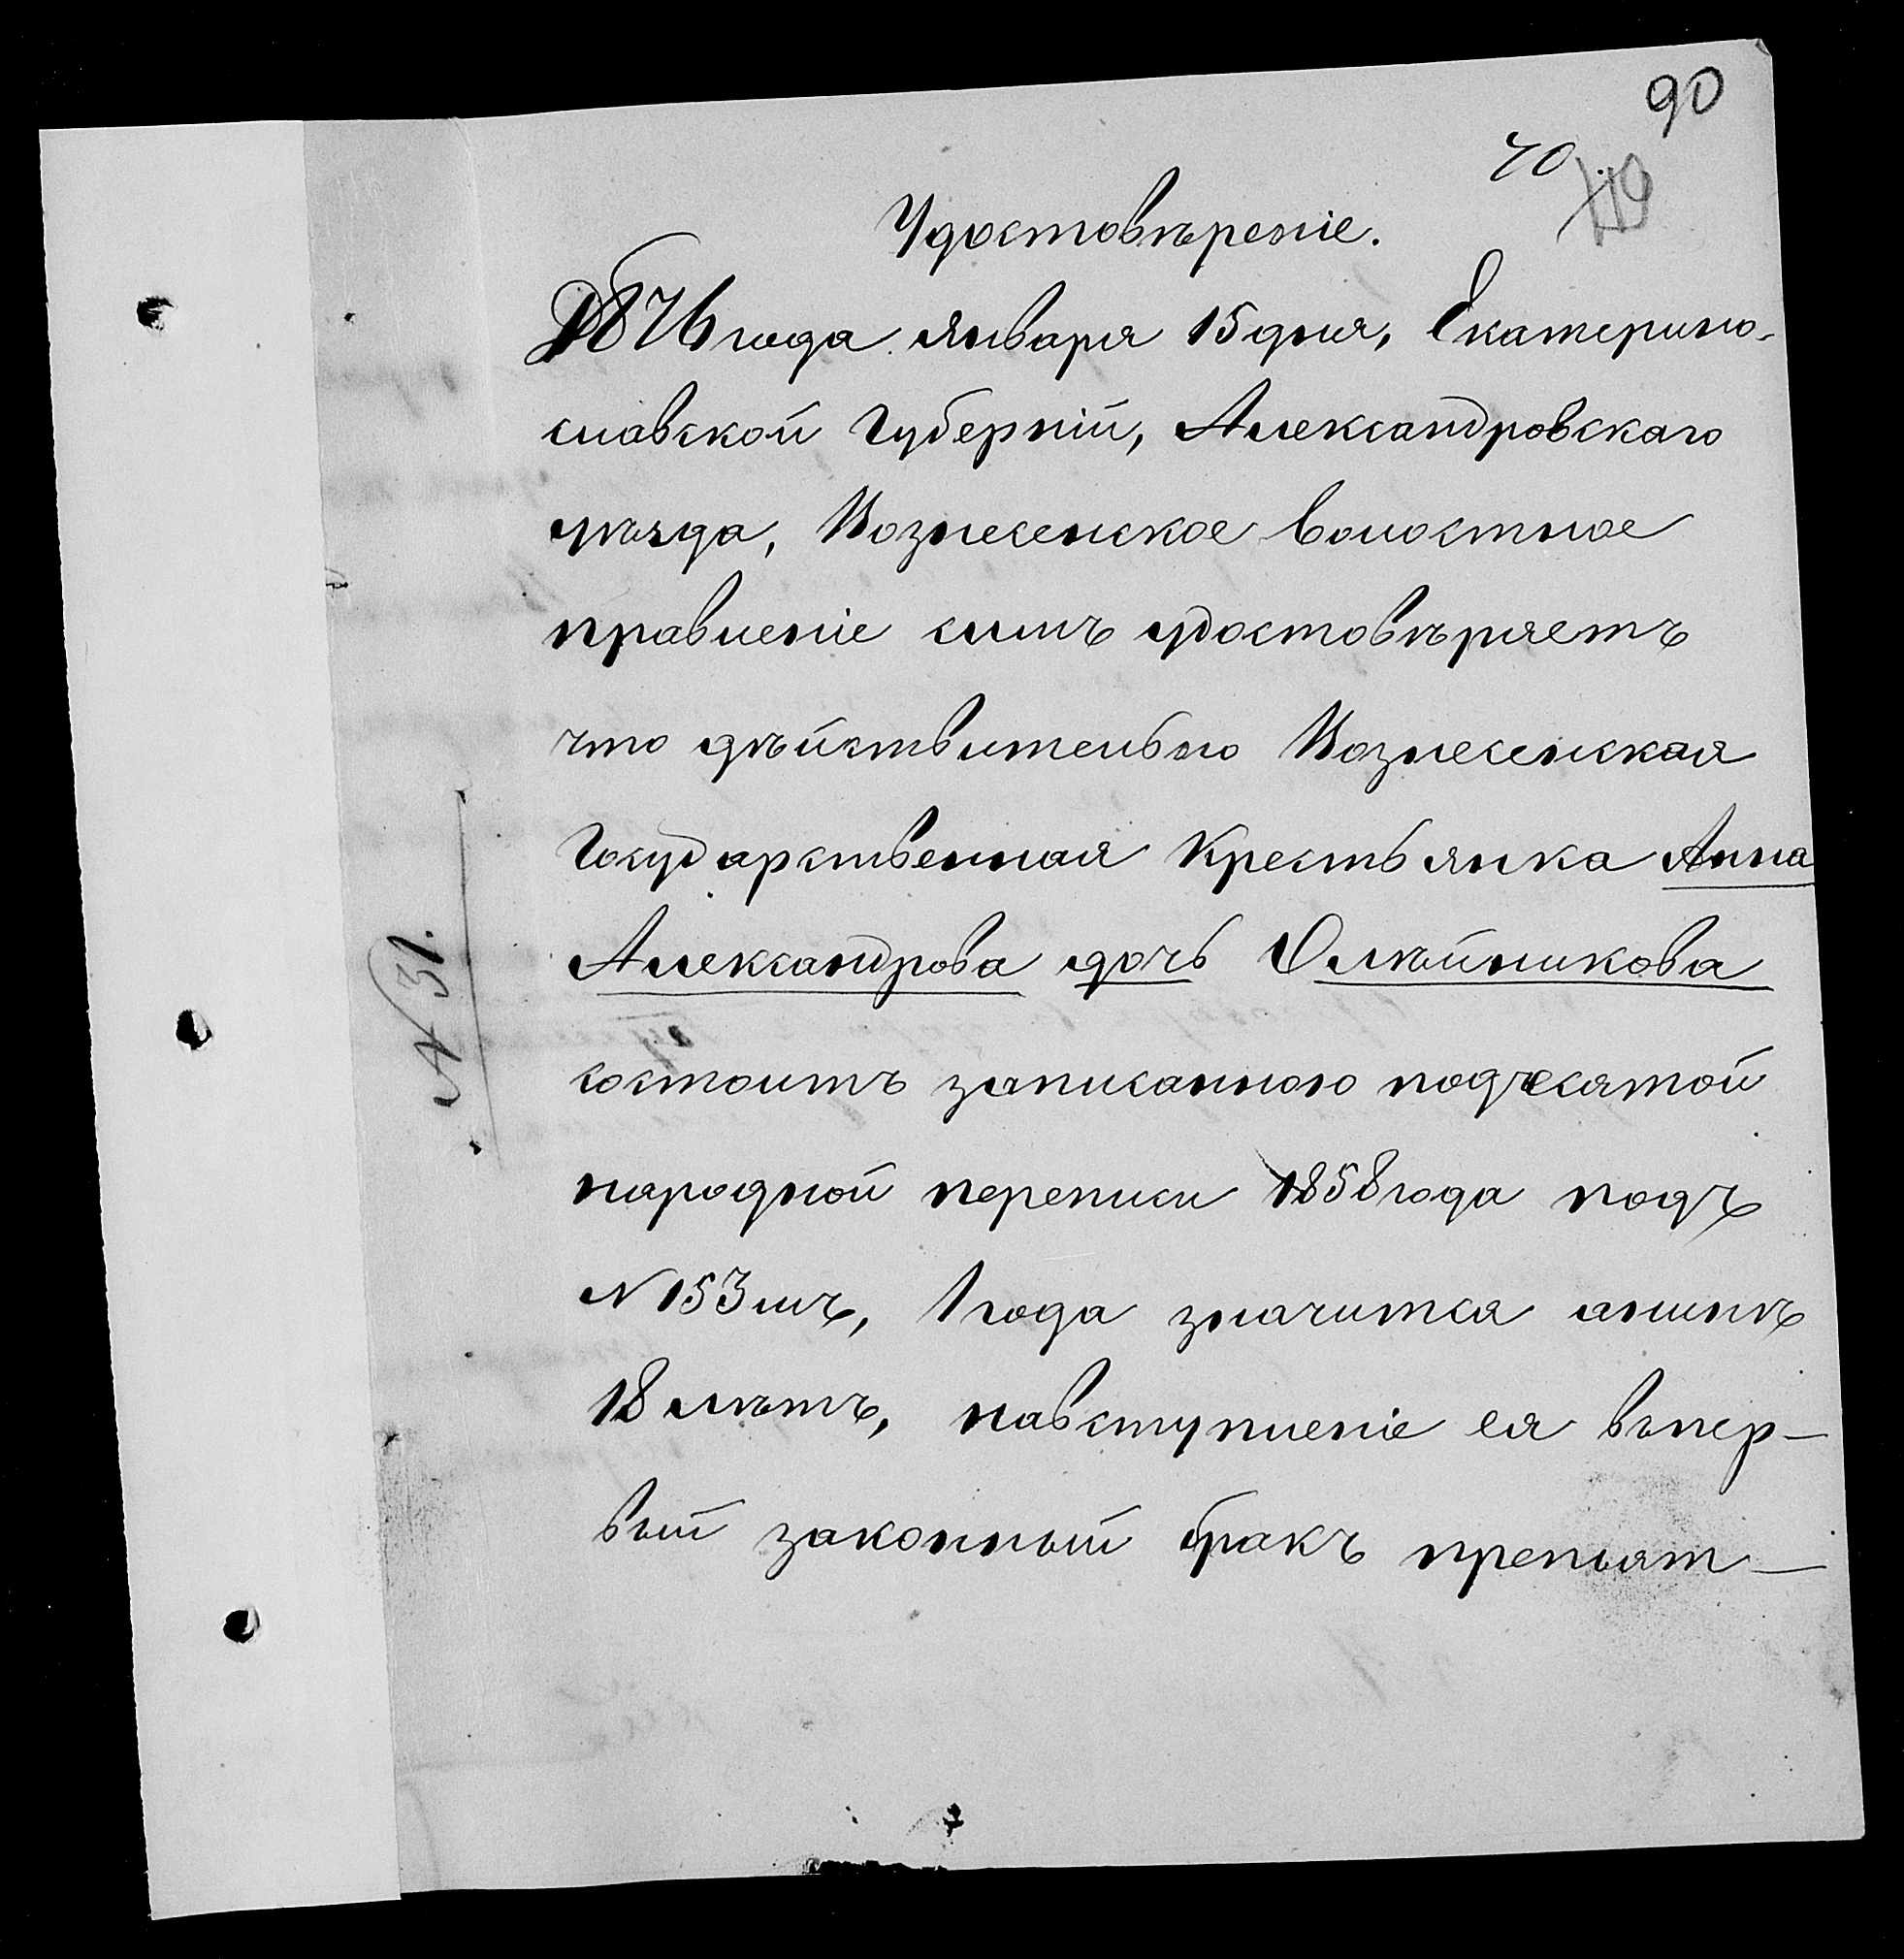 90
40.
Удостовѣреніе.
1876 года Января 15 дня, Екатерино-
славской Губерніи, Александровскаго
уѣзда, Вознесенское Волостное
правленіе симъ удостовѣряетъ
что дѣйствительно Вознесенская
Государственная Крестьянка Анна
Александрова дочь Олѣйникова
состоитъ записанною подесятой
народной переписи 1858 года подъ
№ 153 мъ, 1 года значится анынѣ
18 лѣтъ, навступленіе ея въпер-
вый законный бракъ препят-
№ 31.